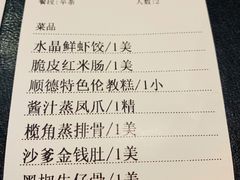 餐段:早茶 人数:2
菜品
水晶鲜虾饺/1美
脆皮红米肠/1美
顺德特色伦教糕/1小
酱汁蒸凤爪/1精
榄角蒸排骨/1美
沙爹金钱肚/1美
黑椒牛仔骨/1美